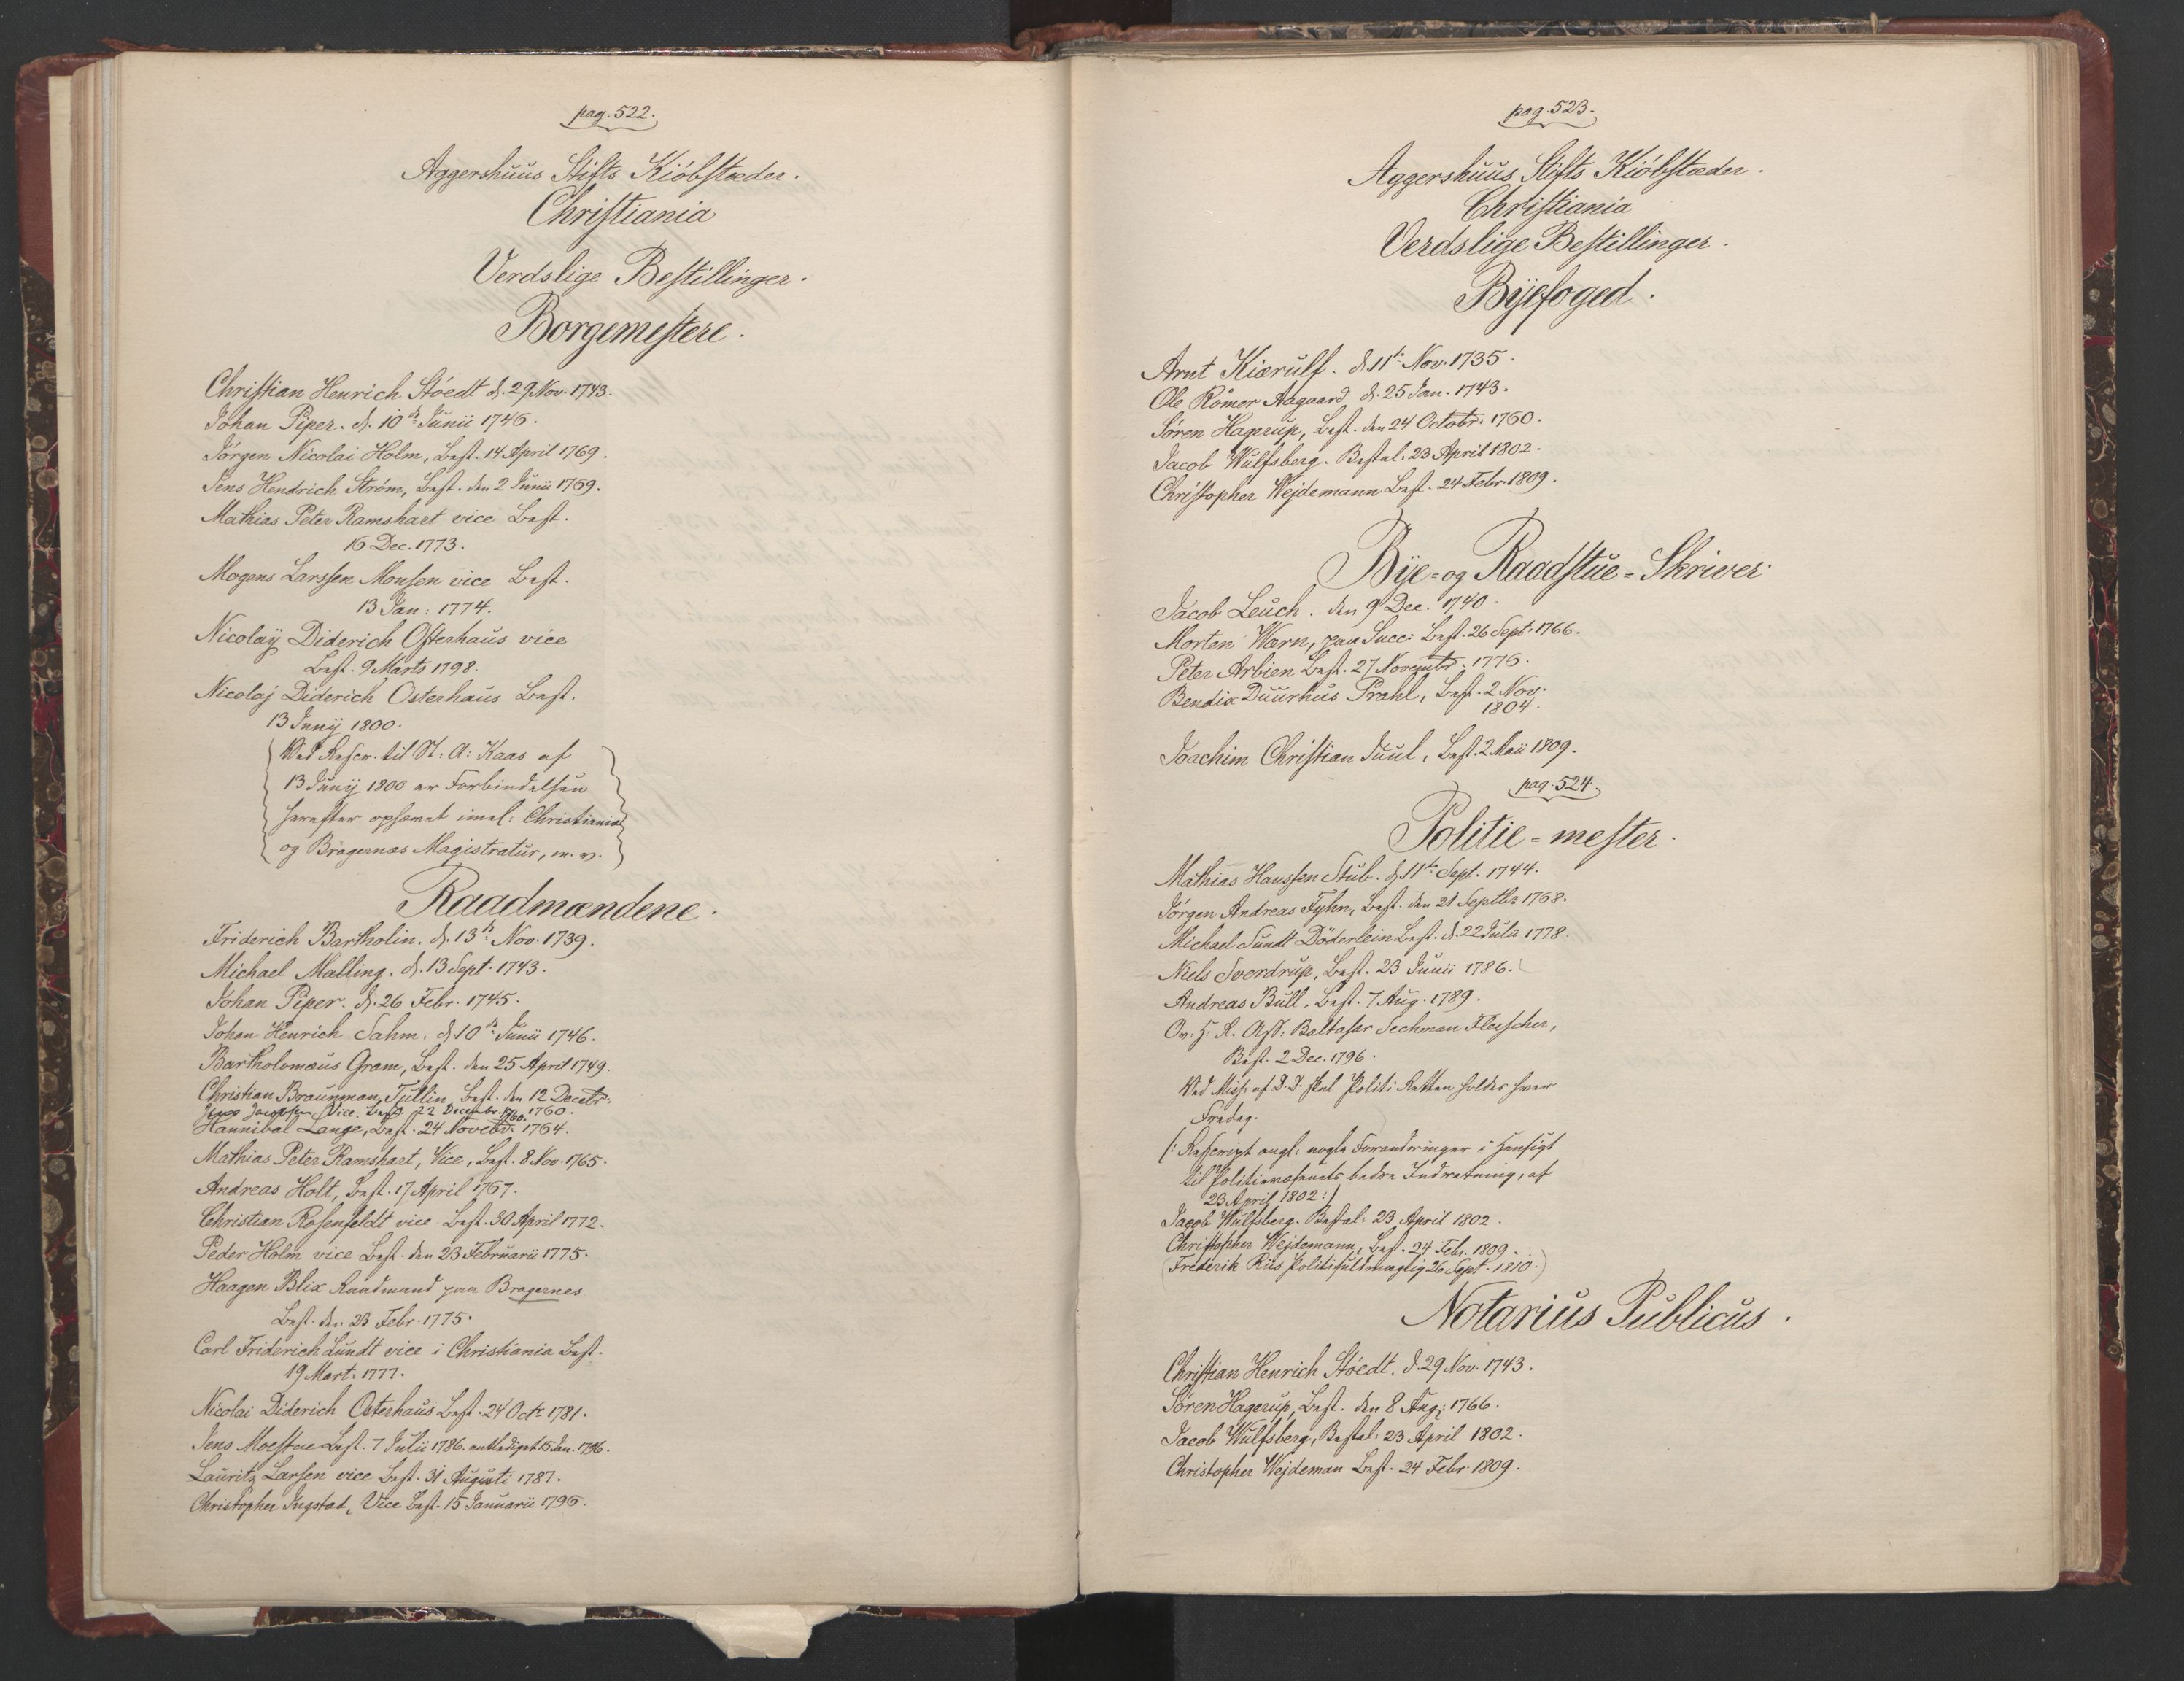 pag. 522.
Aggershuus Stifts Kiöbstæder.
Christiania
Verdslige Bestillinger.
Borgemestere.
Christian Henrich Stöedt d. 29 Nov. 1743.
Johan Piper. d. 10de Junii 1746.
Jörgen Nicolai Holm, Best. 14 April 1769.
Jens Hendrich Ström, Best. den 2 Junii 1769.
Mathias Peter Ramshart vice Best.
16 Dec. 1773.
Mogens Larssen Monsen vice Best.
13 Jan: 1774.
Nicolaÿ Diderich Osterhaus vice
Best. 9 Marts 1798.
Nicolaj Diderich Osterhaus Best.
13 Junij 1800.
Ved Rescr. til St: A: Kaas af
13 Junij 1800 er Forbindelsen
herefter ophævet imel: Christiania
og Bragernæs Magistratur, m. v.
Raadmændene.
Friderich Bartholin. d. 13de Nov. 1739.
Michael Malling. d. 13 Sept. 1743.
Johan Piper. d. 26 Febr. 1745.
Johan Henrich Sahm. d. 10de Junii 1746.
Bartholomæus Gram, Best. den 25 April 1749.
Christian Braunman Tullin, Best. den 12 Decebr:
1760.
Jens Jacobsen, Vice. Best. 22 Decembr. 1760.
Hannibal Lange, Best. 24 Novebr: 1764.
Mathias Peter Ramshart, Vice, Best. 8 Nov. 1765.
Andreas Holt, Best. 17 April 1767.
Christian Rosenfeldt vice Best. 30 April 1772.
Peder Holm vice Best. den 23 Februarii 1775.
Haagen Blix Raadmand paa Bragernes
Best. den 23 Febr. 1775.
Carl Friderich Lundt vice i Christiania Best.
19 Mart. 1777.
Nicolai Diderich Osterhaus Best. 24 Octr 1781.
Jens Moestue Best. 7 Julii 1786. entlediget 15 Jan. 1796.
Lauritz Larsen vice Best. 31 Augusti 1787.
Christopher Ingstad, Vice Best. 15 Januarii 1796.
pag. 523.
Aggershuus Stifts Kiöbstæder.
Christiania
Verdslige Bestillinger.
Byefoged.
Arnt Kiærulf. d. 11te Nov. 1735.
Ole Römer Aagaard d. 25 Jan. 1743.
Sören Hagerup, Best. den 24 Octobr: 1760.
Jacob Wulfsberg. Bestal: 23 April 1802.
Christopher Wejdemann Best. 24 Febr. 1809.
Bÿe- og Raadstue-Skriver
Jacob Leuch. den 9 Dec. 1740.
Morten Wærn, paa Succ: Best. 26 Sept. 1766.
Peter Arbien Best. 27 Novembr. 1776.
Bendix Duurhus Prahl, Best. 2 Nov.
1804.
Joachim Christian Juul, Best. 2 Maii 1809.
pag. 524.
Politie-mester.
Mathias Hanssen Stub. d. 11te Sept. 1744.
Jörgen Andreas Fyhn, Best. den 21 Septbr 1768.
Michael Sundt Döderlein Best. d. 22 Julii 1778.
Niels Sverdrup, Best. 23 Junii 1786.
Andreas Bull, Best. 7 Aug. 1789.
Ov. H. R. Ass: Baltasar Sechman Fleischer,
Best. 2 Dec. 1796.
Ved Miss. af D. D. skal Politi Retten holdes hver
Fredag.
/: Rescript angl: nogle Forandringer i Hensigt
til Politievæsenets bedre Indretning, af
23 April 1802:/
Jacob Wulfsberg. Bestal: 23 April 1802.
Christopher Wejdemann, Best. 24 Febr. 1809.
(Frederik Riis Politifuldmægtig 26 Sept. 1810.)
Notarius Publicus.
Christian Henrich Stöedt. d. 29 Nov. 1743.
Sören Hagerup, Best. den 8 Aug: 1766.
Jacob Wulfsberg, Bestal: 23 April 1802.
Christopher Wejdeman Best. 24 Febr. 1809.